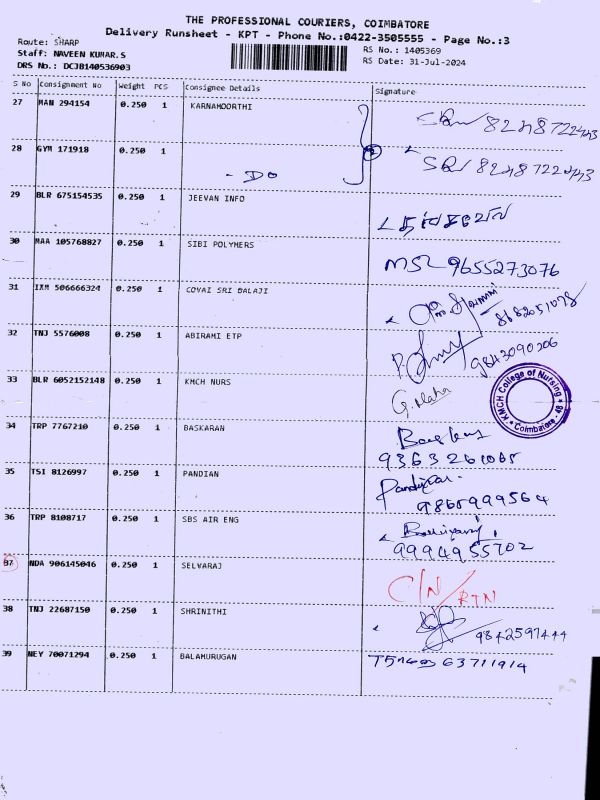 THE PROFESSIONAL COURIERS, COIMBATORE
Delivery Runsheet - KPT - Phone No.:0422-3505555 - Page No.:3
Route: SHARP
Staff: NAVEEN KUMAR.S
DRS No.: DCJB140536903
RS No.: 1405369
RS Date: 31-Jul-2024
S No Consignment No Weight PCS Consignee Details Signature
27 MAN 294154 0.250 1 KARNAMOORTHI
28 GYM 171918 0.250 1 - DO
29 BLR 675154535 0.250 1 JEEVAN INFO
30 MAA 105768827 0.250 1 SIBI POLYMERS 9655273076
31 IXM 506666324 0.250 1 COVAI SRI BALAJI
32 TNJ 5576008 0.250 1 ABIRAMI ETP 9843090206
33 BLR 6052152148 0.250 1 KMCH NURS G. Maha
KMCH College of Nursing
Coimbatore - 48
34 TRP 7767210 0.250 1 BASKARAN
35 TSI 8126997 0.250 1 PANDIAN
36 TRP 8108717 0.250 1 SBS AIR ENG
9994955702
37 NDA 906145046 0.250 1 SELVARAJ C/N/RTN
38 TNJ 22687150 0.250 1 SHRINITHI
39 NEY 70071294 0.250 1 BALAHURUGAN 63711914